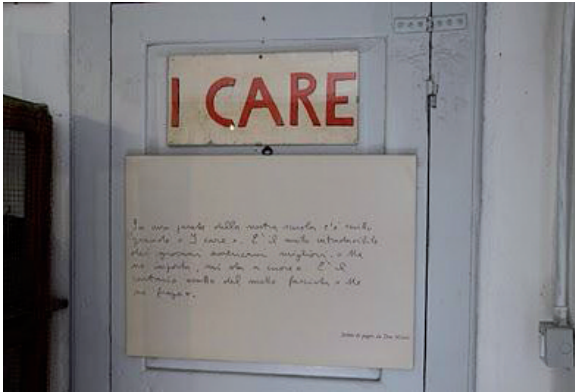 I CARE
Su una parete della nostra scuola c'è scritto
grande « I care ». È il motto intraducibile
dei giovani americani migliori. « Me
ne importa, mi sta a cuore ». È il
contrario esatto del motto fascista « Me
ne frego ».